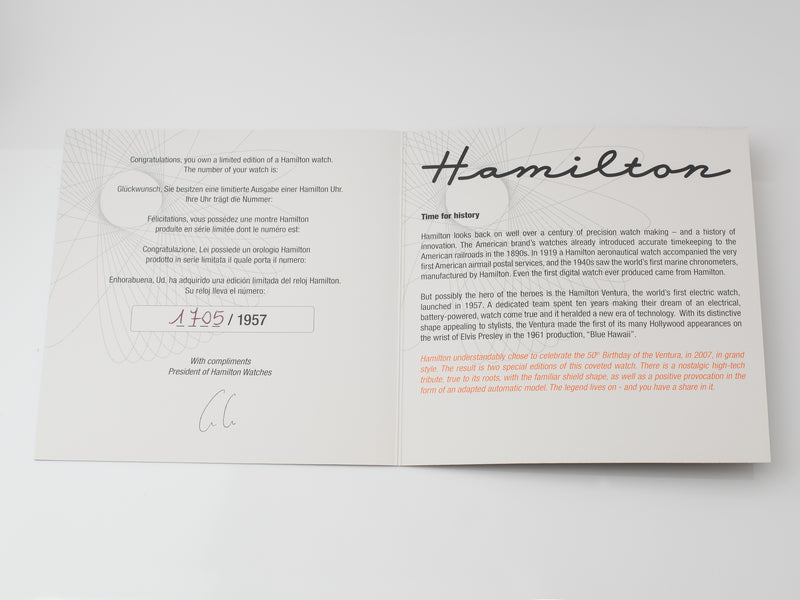 Congratulations, you own a limited edition of a Hamilton watch.
The number of your watch is:
Glückwunsch, Sie besitzen eine limitierte Ausgabe einer Hamilton Uhr.
Ihre Uhr trägt die Nummer:
Félicitations, vous possédez une montre Hamilton
produite en série limitée dont le numéro est:
Congratulazione, Lei possiede un orologio Hamilton
prodotto in serie limitata il quale porta il numero:
Enhorabuena, Ud. ha adquirido una edición limitada del reloj Hamilton.
Su reloj lleva el número:
1705 / 1957
With compliments
President of Hamilton Watches
Hamilton
Time for history
Hamilton looks back on well over a century of precision watch making – and a history of
innovation. The American brand's watches already introduced accurate timekeeping to the
American railroads in the 1890s. In 1919 a Hamilton aeronautical watch accompanied the very
first American airmail postal services, and the 1940s saw the world's first marine chronometers,
manufactured by Hamilton. Even the first digital watch ever produced came from Hamilton.
But possibly the hero of the heroes is the Hamilton Ventura, the world's first electric watch,
launched in 1957. A dedicated team spent ten years making their dream of an electrical,
battery-powered, watch come true and it heralded a new era of technology. With its distinctive
shape appealing to stylists, the Ventura made the first of its many Hollywood appearances on
the wrist of Elvis Presley in the 1961 production, "Blue Hawaii".
Hamilton understandably chose to celebrate the 50th Birthday of the Ventura, in 2007, in grand
style. The result is two special editions of this coveted watch. There is a nostalgic high-tech
tribute, true to its roots, with the familiar shield shape, as well as a positive provocation in the
form of an adapted automatic model. The legend lives on - and you have a share in it.